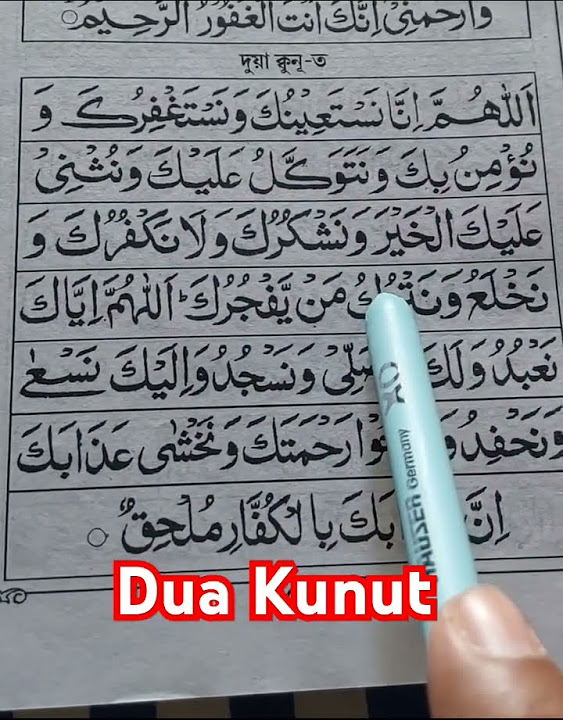 وَارْحَمْنِیْ اِنَّكَ اَنْتَ الْغَفُوْرُ الرَّحِیْمُ
দুয়া কুনূ-ত
اَللّٰهُمَّ اِنَّا نَسْتَعِیْنُكَ وَنَسْتَغْفِرُكَ وَ
نُؤْمِنُ بِكَ وَنَتَوَكَّلُ عَلَیْكَ وَنُثْنِیْ
عَلَیْكَ الْخَیْرَ وَنَشْكُرُكَ وَلَا نَكْفُرُكَ وَ
نَخْلَعُ وَنَتْرُكُ مَنْ یَّفْجُرُكَ اَللّٰهُمَّ اِیَّاكَ
نَعْبُدُ وَلَكَ وَنَسْجُدُ وَاِلَیْكَ نَسْعٰی
وَنَحْفِدُ رَحْمَتَكَ وَنَخْشٰی عَذَابَكَ
اِنَّ بِالْكُفَّارِ مُلْحِقٌ
Dua Kunut
Germany